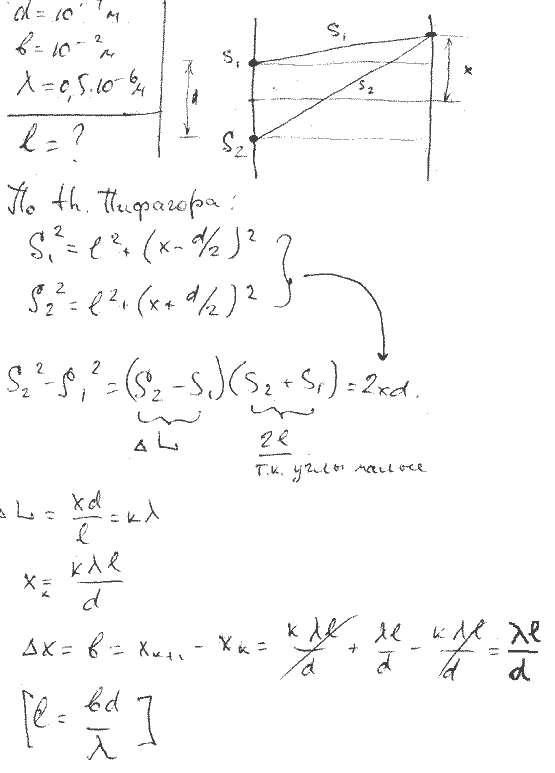 d = 10⁻⁴ м
b = 10⁻² м
λ = 0,5·10⁻⁶ м
l = ?
S₁
S₁
S₂
S₂
d
x
По th. Пифагора:
S₁² = l² + (x - d/2)²
S₂² = l² + (x + d/2)²
S₂² - S₁² = (S₂ - S₁)(S₂ + S₁) = 2xd.
ΔL 2l
т.к. углы малые
ΔL = xd/l = kλ
xₖ = kλl/d
Δx = b = xₖ₊₁ - xₖ = kλl/d + λl/d - kλl/d = λl/d
[l = bd/λ]